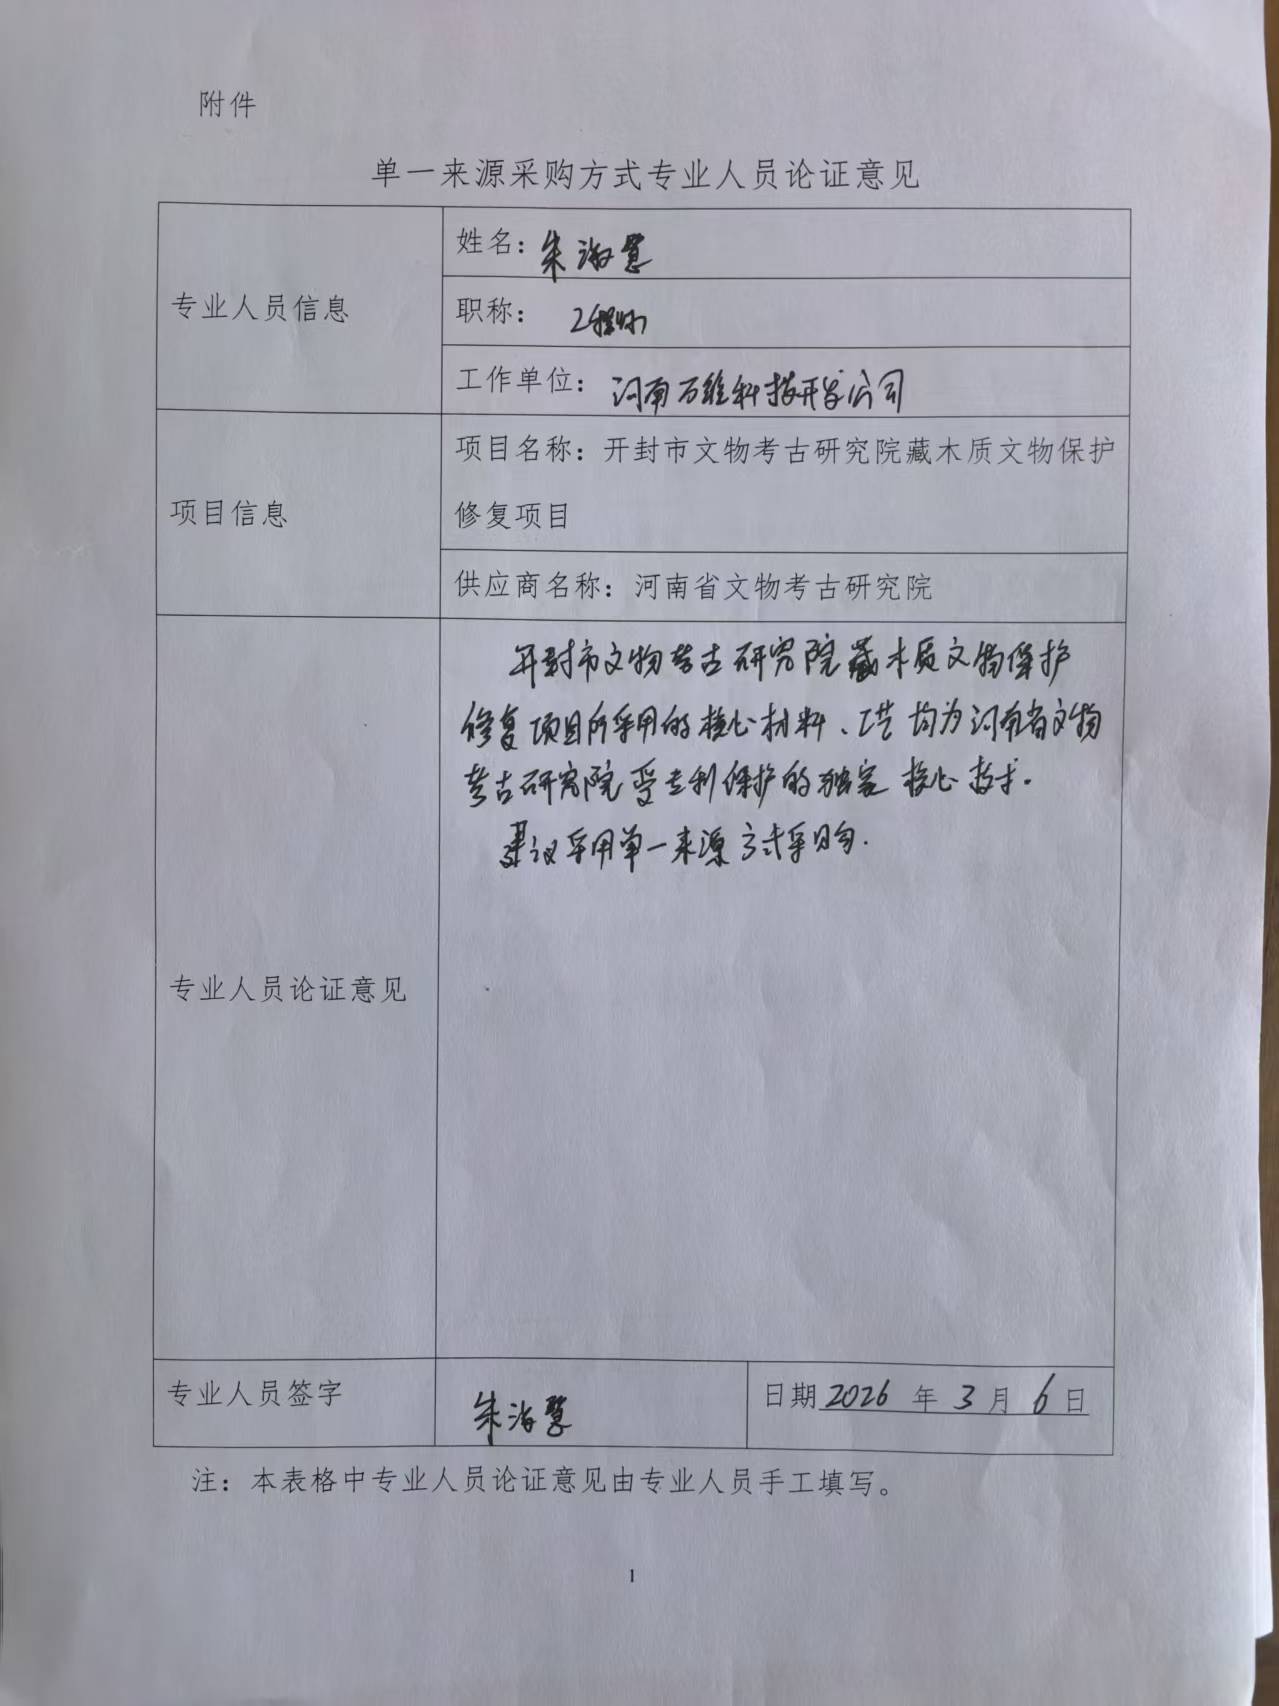 附件
单一来源采购方式专业人员论证意见
专业人员信息
姓名：朱淑慧
职称：工程师
工作单位：河南万维科技开发公司
项目信息
项目名称：开封市文物考古研究院藏木质文物保护
修复项目
供应商名称：河南省文物考古研究院
专业人员论证意见
开封市文物考古研究院藏木质文物保护
修复项目所采用的核心材料、工艺均为河南省文物
考古研究院受专利保护的独家核心技术。
建议采用单一来源方式采购.
专业人员签字
朱淑慧
日期2026年3月6日
注：本表格中专业人员论证意见由专业人员手工填写。
1